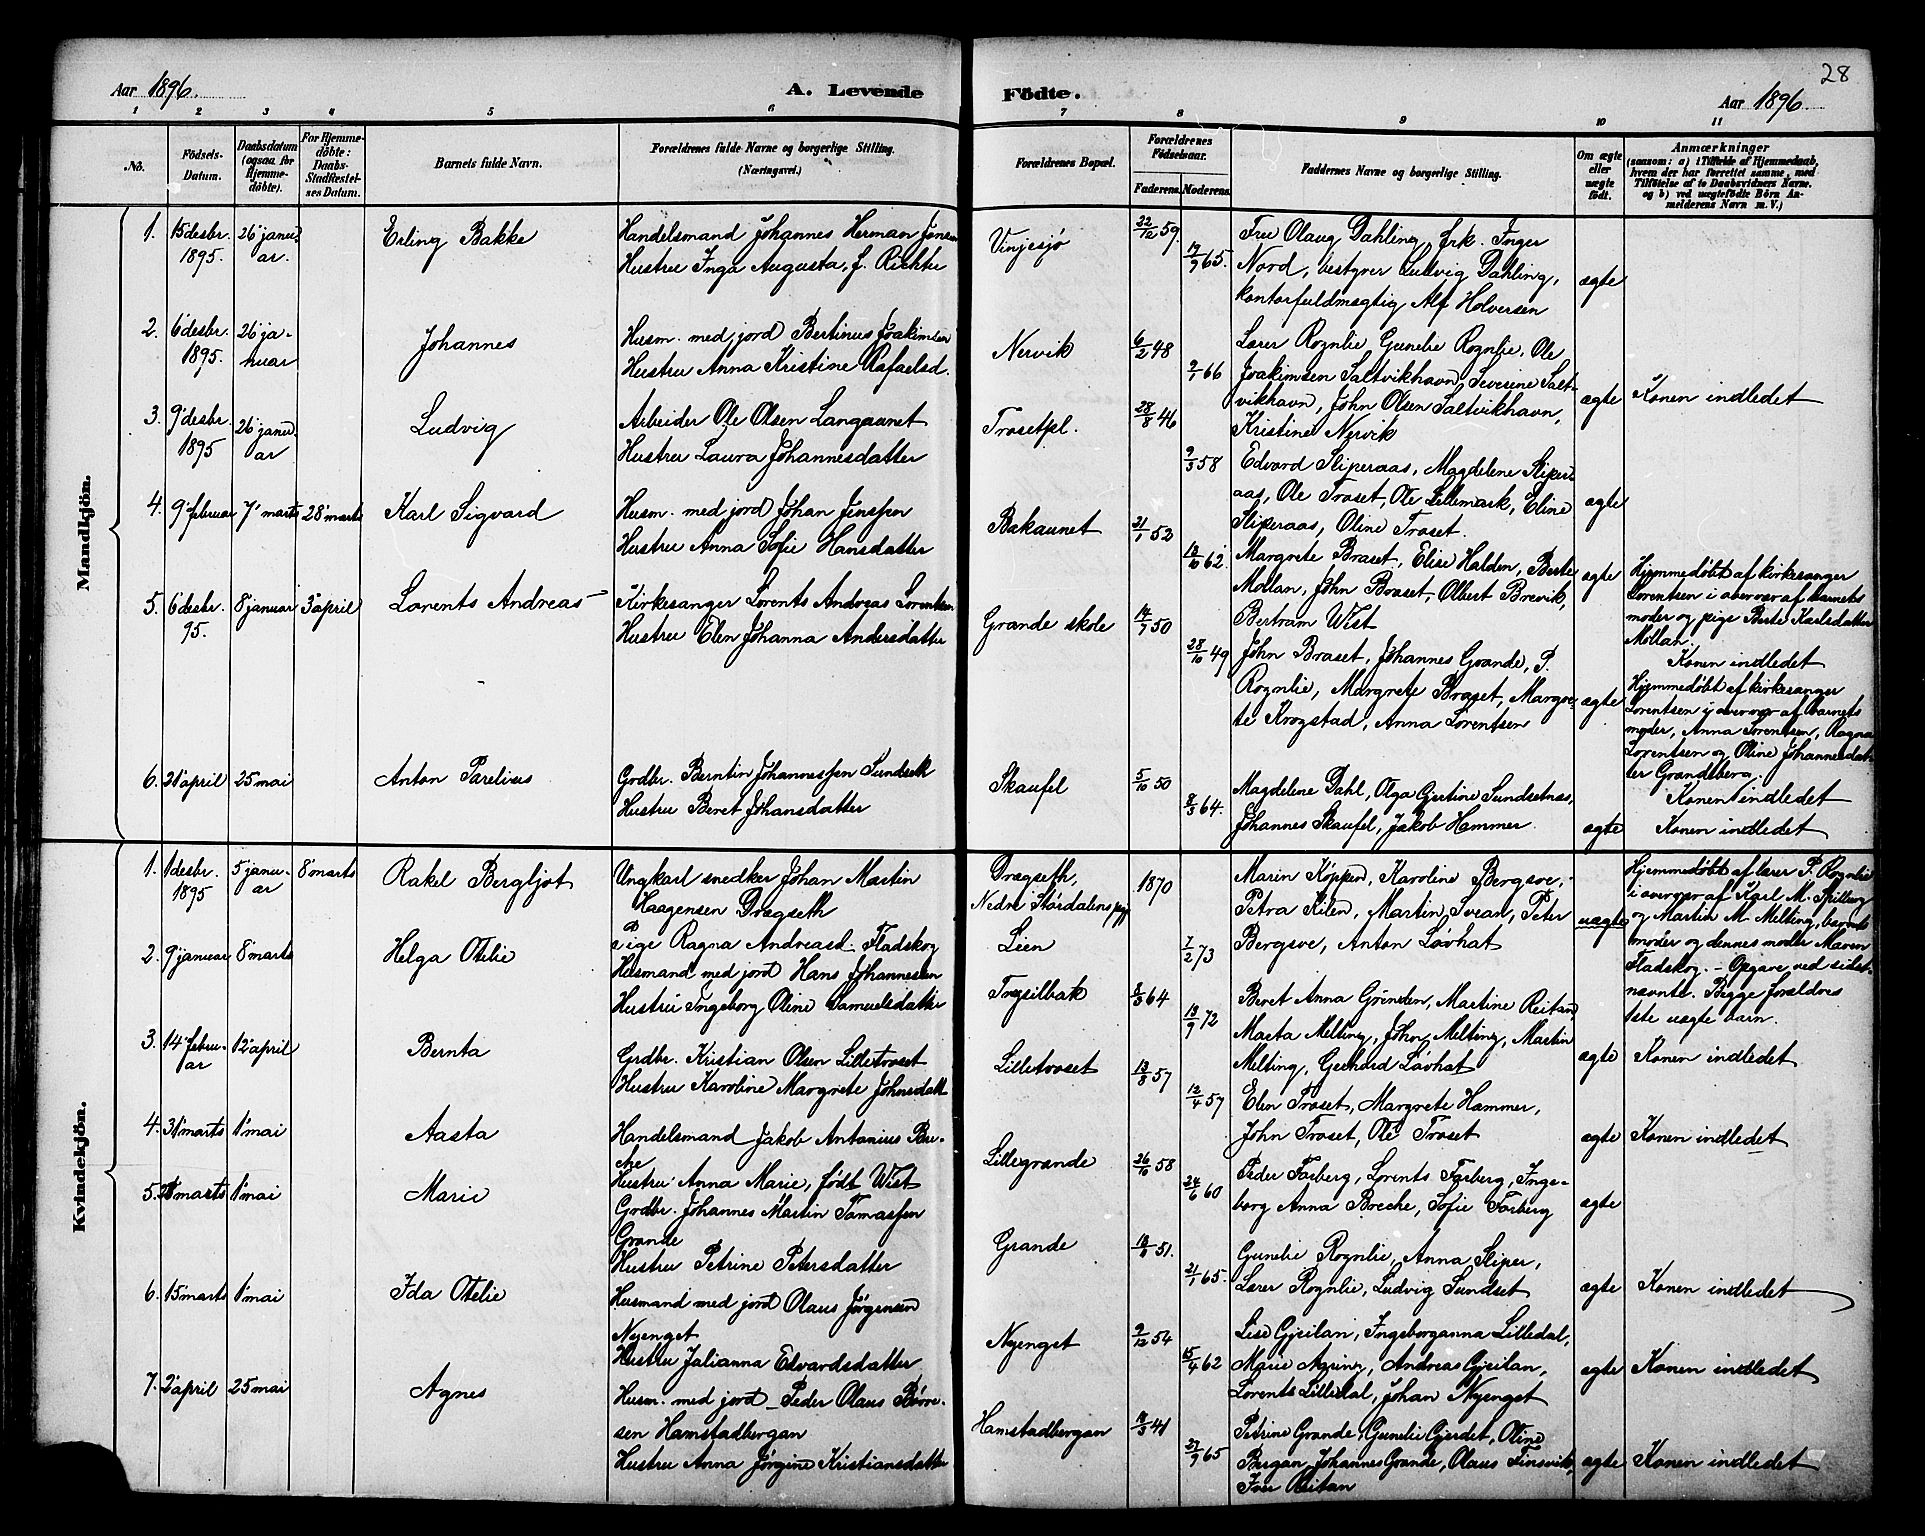 28
Aar 1896.
A. Levende Födte.
Aar 1896
1 2 3 4 5 6 7 8 9 10 11
No.
Födsels-Datum.
Daabsdatum (ogsaa for Hjemmedöbte).
For Hjemmedöbte: Daabs-Stadfestelses Datum.
Barnets fulde Navn.
Forældrenes fulde Navne og borgerlige Stilling. (Næringsvei.)
Forældrenes Bopæl.
Forældrenes Födselsaar.
Faderens. Moderens.
Faddernes Navne og borgerlige Stilling.
Om ægte eller uægte födt.
Anmærkninger
(saasom: a) i Tilfælde af Hjemmedaab, hvem der har forrettet samme, med Tilföielse af to Daabsvidners Navne. og b) ved uægtefödte Börn Anmelderens Navn m. V.)
Mandkjön.
1. 15 desbr. 1895. 26 januar. Erling Bakke
Handelsmand Johannes Herman Jensen
Hustru Inga Augusta, f. Richter
Vinjesjø 22/12 59. 19/9 65.
Fru Olaug Dahling, frk. Inger
Nord, bestyrer Ludvig Dahling,
kontorfuldmægtig Alf Holversen
ægte
2. 6 desbr. 1895. 26 januar Johannes
Husm. med jord Bertinus Joakimsen
Hustru Anna Kristine Rafaelsd.
Nervik 6/2 48 9/1 66
Lærer Rognlie, Gunelie Rognlie, Ole
Joakimsen Saltvikhavn, Severine Salt-
vikhavn, John Olsen Saltvikhavn,
Kristine Nervik
ægte Konen indledet
3. 9 desbr. 1895 26 januar Ludvig
Arbeider Ole Olsen Langaunet
Hustru Laura Johannesdatter
Trøsetpl. 28/8 46 9/3 58
Edvard Sliperaas, Magdelene Sliper-
aas, Ole Trøset, Ole Lillemark, Eline
Sliperaas, Oline Trøset.
ægte
4. 9 februar 7 marts 28 marts Karl Sigvard
Husm. med jord Johan Jensen
Hustru Anna Sofie Hansdatter
Bakaunet 21/1 52 13/10 62.
Margrete Braset, Elise Halden, Berte
Mollan, John Braset, Olbert Brevik,
Bertram Wist
ægte
Hjemmedøbt af kirkesanger
Lorentsen i overvær af barnets
moder og pige Berte Karlsdatter
Mollan.
Konen indledet
5. 6 desbr. 95. 8 januar 3 april Lorents Andreas
Kirkesanger Lorents Andreas Lorentsen
Hustru Elen Johanna Andersdatter
Grande skole 14/7 50 28/10 49
John Braset, Johannes Grande, P.
Rognlie, Margrete Braset, Margre-
te Krogstad, Anna Lorentsen
ægte
Hjemmedøbt af kirkesanger
Lorentsen i overvær af barnets
moder, Anna Lorentsen, Ragna
Lorentsen og Oline Johannesdat-
ter Grandsberg.
Konen indledet
6. 21 april 25 mai Anton Parelius
Grdbr. Berntin Johannessen Sundset
Hustru Beret Johansdatter
Skaufel 5/10 50 8/3 64.
Magdelene Dahl, Olga Gjertine Sundsetnæs,
Johannes Skaufel, Jakob Hammer.
ægte Konen indledet
Kvindekjön.
1. 1 desbr. 1895 5 januar 8 marts Rakel Bergljot
Ungkarl snedker Johan Martin
Haagensen Drøgseth
Pige Ragna Andreasd. Fladskog
Drøgseth,
Nedre Størdalens
Leien 1870 7/2 73
Marin Køppen, Karoline Bergsve,
Petra Kilen, Martin Svean, Peter
Bergsve, Anton Løvhat
uægte
Hjemmedøbt af lærer P. Rognlie
i overvær af Karl M. Spilberg
og Martin M. Melting, barnets
moder og dennes moder Maren
Fladskog. — Opgave ved sidst-
nævnte. Begge forældres
1ste uægte barn.
2. 9 januar 8 marts Helga Otelie
Husmand med jord Hans Johannessen
Hustru Ingeborg Oline Samuelsdatter
Trysilbak 8/3 64 13/9 72
Beret Anna Grønden, Martine Reitan,
Marta Melting, John Melting, Martin
Melting, Gerhard Løvhat
ægte Konen indledet
3. 14 februar 12 april Bernta
Grdbr. Kristian Olsen Lilletrøset
Hustru Karoline Margrete Johnsdatt
Lilletrøset 13/8 57 12/4 57
Elen Trøset, Margrete Hammer,
John Trøset, Ole Trøset
ægte Konen indledet
4. 31 marts 1 mai Aasta
Handelsmand Jakob Antonius Bre-
che
Hustru Anna Marie, født Wist
Lillegrande 26/10 58 24/6 60
Peder Farberg, Lorents Farberg, Inge-
borg Anna Breche, Sofie Farberg
ægte
5. marts 1 mai Marie
Grdbr. Johannes Martin Tomassen
Grande
Hustru Petrine Petersdatter
Grande 51. 21/1 65.
Gunelie Rognlie, Anna Sliper,
Lærer Rognlie, Ludvig Sundset
ægte Konen indledet
6. 15 marts 1 mai Ida Otelie
Husmand med jord Olaus Jørgensen
Nyenget
Hustru Julianna Edvardsdatter
Nyenget 9/12 54 15/4 62
Lise Gjeilan, Ingeborganna Lilledal,
Marie Andreas Gjeilan,
Lorents Lilledal, Johan Nyenget
ægte Konen indledet
7. 2 april 25 mai Agnes
Husm. med jord Peder Olaus Børre-
sen Hamstadbergan
Hustru Anna Jørgine Kristiansdatter
Hamstadbergan 41 27/9 65
Petrine Grande, Gunelie Gjerdet, Oline
Bergan, Johannes Grande, Olaus Finsvik,
Iver Reitan
ægte Konen indledet